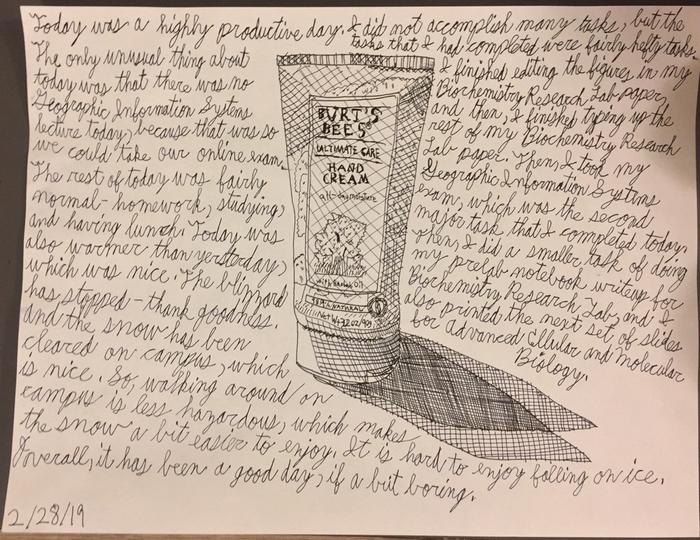 Today was a highly productive day. I did not accomplish many tasks, but the
tasks that I had completed were fairly hefty tasks.
The only unusual thing about
today was that there was no
Geographic Information Systems
lecture today, because that was so
we could take our online exam.
The rest of today was fairly
normal - homework, studying,
and having lunch. Today was
also warmer than yersterday,
which was nice. The blizzard
has stopped - thank goodness.
and the snow has been
cleared on campus, which
is nice. So, walking around on
campus is less hazardous, which makes
the snow a bit easier to enjoy. It is hard to enjoy falling on ice.
Overall, it has been a good day, if a but boring.
2/28/19
BURT'S
BEES
ULTIMATE CARE
HAND
CREAM
all-day moisture
with Baobab Oil
NATURAL
Net Wt
I finished editing the figures in my
Biochemistry Research Lab paper,
and then, I finished typing up the
rest of my Biochemistry Research
Lab paper. Then, I took my
Geographic Information Systems
exam, which was the second
major task that I completed today.
Then, I did a smaller task of doing
my prelab notebook writeup for
Biochemistry Research Lab, and I
also printed the next set of slides
for Advanced Cellular and Molecular
Biology.